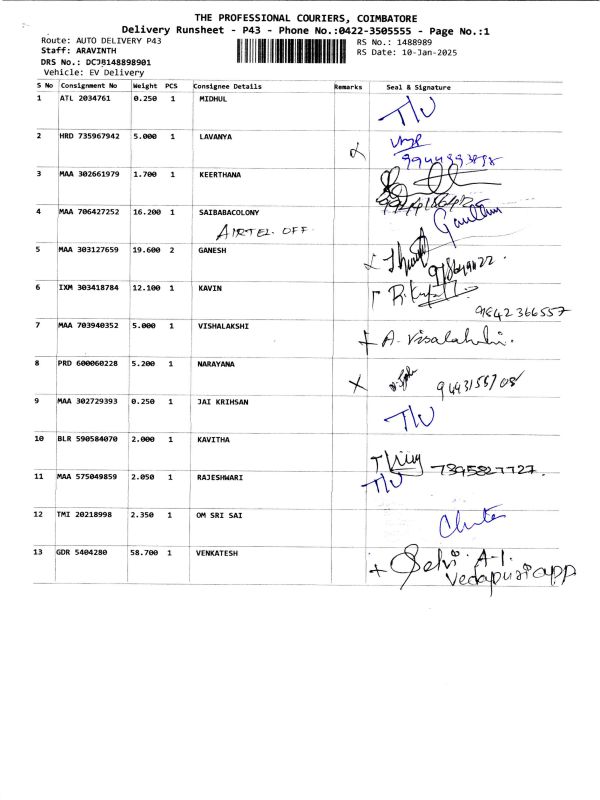 THE PROFESSIONAL COURIERS, COIMBATORE
Delivery Runsheet - P43 - Phone No.:0422-3505555 - Page No.:1
Route: AUTO DELIVERY P43 RS No.: 1488989
Staff: ARAVINTH RS Date: 10-Jan-2025
DRS No.: DCJB148898901
Vehicle: EV Delivery
S No Consignment No Weight PCS Consignee Details Remarks Seal & Signature
1 ATL 2034761 0.250 1 MIDHUL T/U
2 HRD 735967942 5.000 1 LAVANYA
3 MAA 302661979 1.700 1 KEERTHANA
4 MAA 706427252 16.200 1 SAIBABACOLONY Gautam
AIRTEL OFF
5 MAA 303127659 19.600 2 GANESH
6 IXM 303418784 12.100 1 KAVIN
9842366557
7 MAA 703940352 5.000 1 VISHALAKSHI A. Visalakshi.
8 PRD 600060228 5.200 1 NARAYANA 9443156708
9 MAA 302729393 0.250 1 JAI KRIHSAN T/U
10 BLR 590584070 2.000 1 KAVITHA
7395827727.
11 MAA 575049859 2.050 1 RAJESHWARI T/U
12 TMI 20218998 2.350 1 OM SRI SAI
13 GDR 5404280 58.700 1 VENKATESH Selvi A-1.
Vedapuriapp